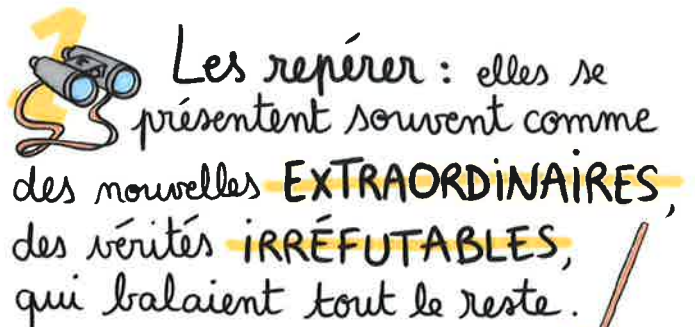 1
Les repérer : elles se
présentent souvent comme
des nouvelles EXTRAORDINAIRES,
des vérités IRRÉFUTABLES,
qui balaient tout le reste.